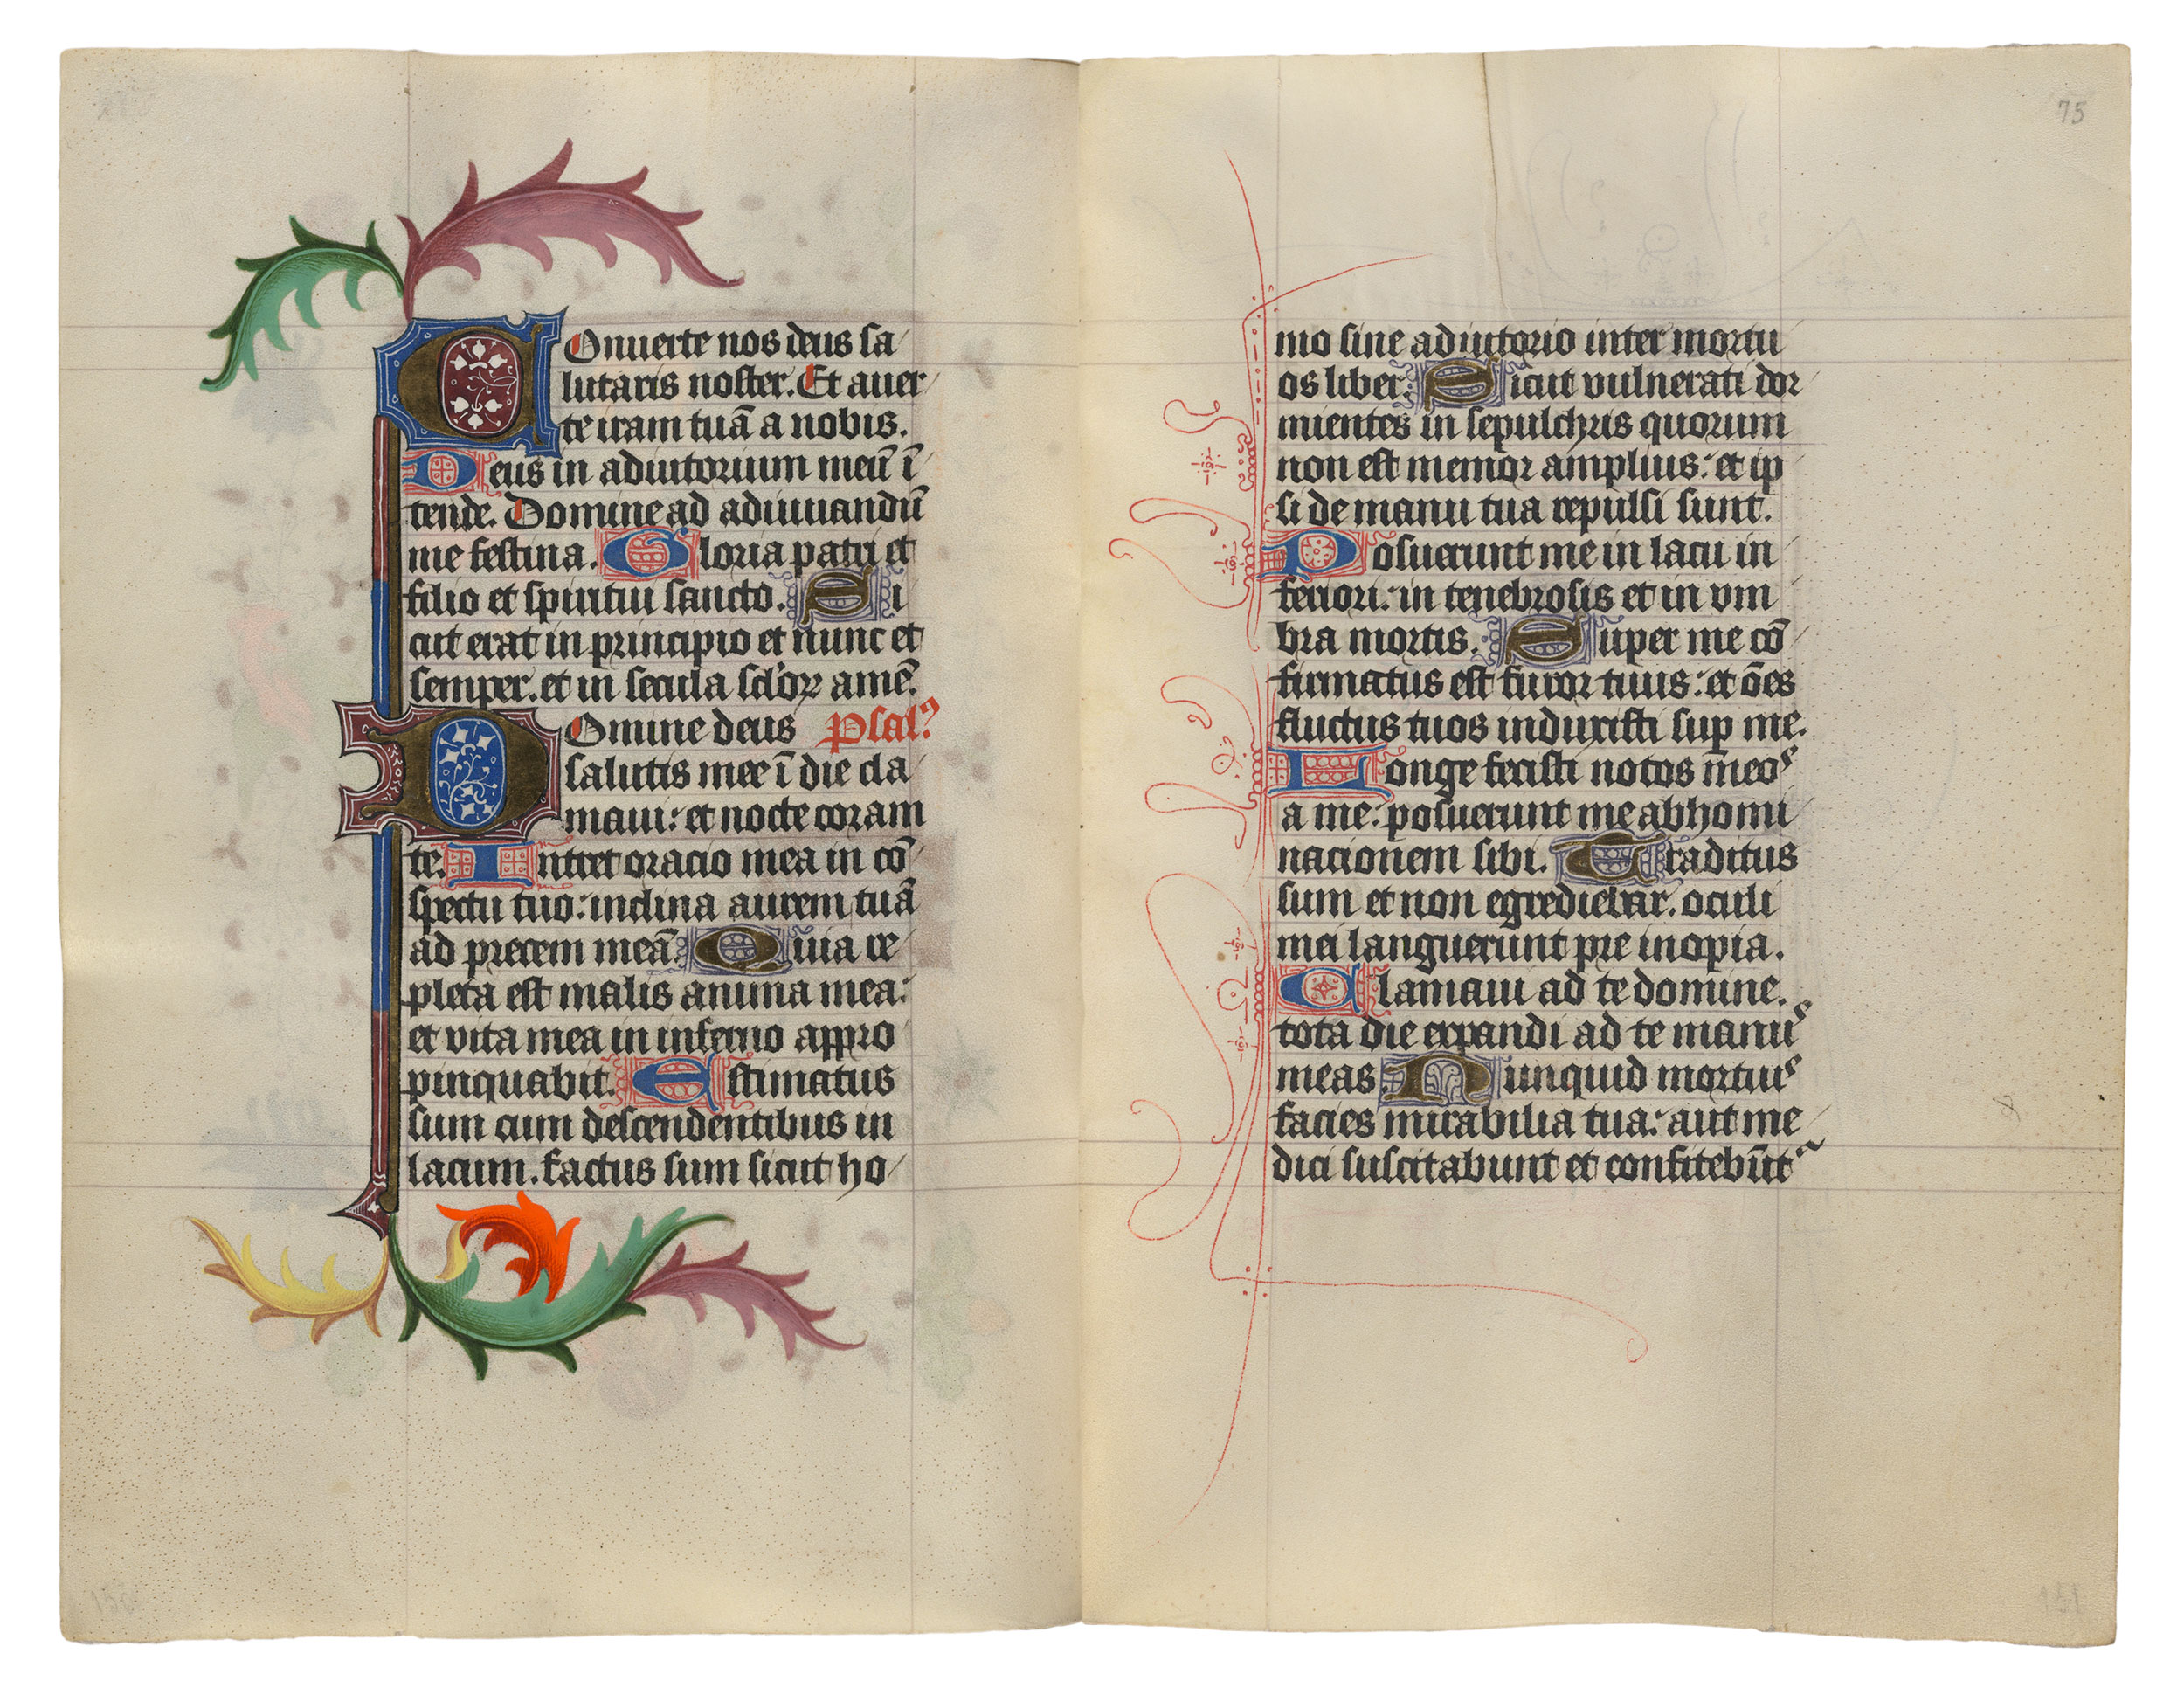 Onuerte nos deus sa
lutaris noster. Et auer
te iram tuā a nobis.
Deus in adiutorium meū ī
tende. Domine ad adiuuandū
me festina. Gloria patri et
filio et spiritui sancto. Si
cut erat in principio et nunc et
semper. et in secula sclōꝝ amē.
Domine deus Psalꝰ
salutis mee ī die cla
maui: et nocte coram
te. Intret oracio mea in cō
spectu tuo: inclina aurem tuā
ad precem meā. Quia re
pleta est malis anima mea:
et vita mea in inferno appro
pinquabit. Estimatus
sum cum descendentibus in
lacum. factus sum sicut ho
75
mo sine adiutorio inter mortu
os liber: Sicut vulnerati dor
mientes in sepulchris quorum
non est memor amplius: et ip
si de manu tua repulsi sunt.
Posuerunt me in lacu in
feriori: in tenebrosis et in vm
bra mortis. Super me cō
firmatus est furor tuus: et ōes
fluctus tuos induxisti suꝑ me.
Longe fecisti notos m̄eos
a me: posuerunt me abhomi
nacionem sibi. Traditus
sum et non egrediebar. oculi
mei languerunt pre inopia.
Clamaui ad te domine.
tota die expandi ad te manus
meas. Nunquid mortuis
facies mirabilia tua: aut me
dici suscitabunt et confitebūt
150
151